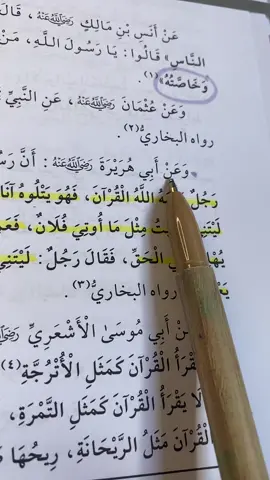 عَنْ أَنَسِ بْنِ مَالِكٍ رَضِيَ اللَّهُ عَنْهُ ، قَالَ
النَّاسِ» قَالُوا: يَا رَسُولَ اللَّهِ، مَنْ
وَخَاصَّتُهُ» (١).
وَعَنْ عُثْمَانَ رَضِيَ اللَّهُ عَنْهُ ، عَنِ النَّبِيِّ
رواه البخاريُّ (٢).
وَعَنْ أَبِي هُرَيْرَةَ رَضِيَ اللَّهُ عَنْهُ : أَنَّ
رَجُلٌ اللَّهُ الْقُرْآنَ، فَهُوَ يَتْلُوهُ آنَا
مِثْلَ مَا أُوتِيَ فُلَانٌ،
الْحَقِّ، فَقَالَ رَجُلٌ: لَيْتَنِي
رواه البخاريُّ (٣).
أَبِي مُوسَى الْأَشْعَرِيِّ
الْقُرْآنَ كَمَثَلِ الْأُتْرُجَّةِ (٤)
لَا يَقْرَأُ الْقُرْآنَ كَمَثَلِ التَّمْرَةِ،
الْقُرْآنَ مَثَلُ الرَّيْحَانَةِ، رِيحُهَا